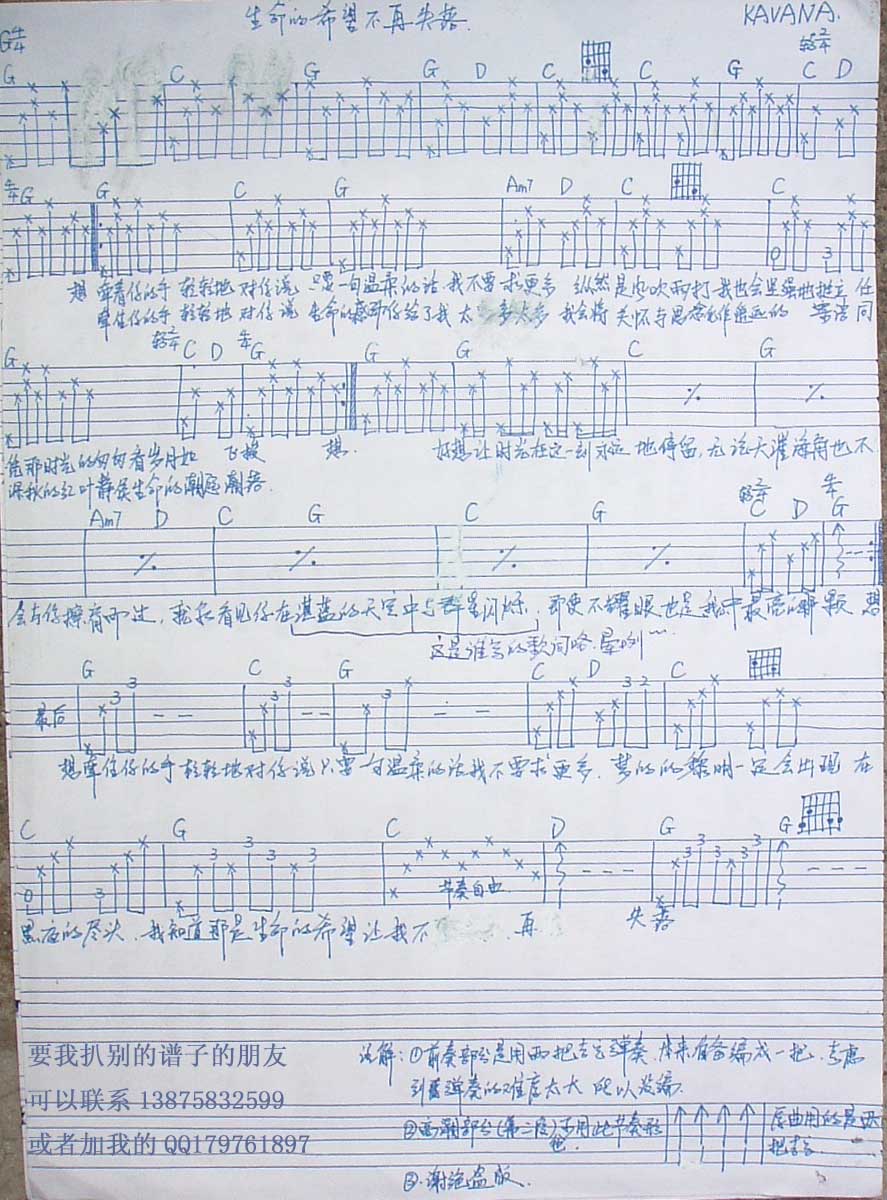 生命的希望不再失落
KAVANA.
G 4/4
转2/4
G C G G D C C G C D
4/4 G G C G Am7 D C C
想 牵着你的手 轻轻地 对你说 只要一句温柔的话 我不要求更多 纵然是风吹雨打 我也会坚强地挺立 任
牵住你的手 轻轻地 对你说 生命的 你给了我太多太多 我会将 关怀与思念 的 同
转2/4 4/4
G C D G G G C G
凭那时光的匆匆看岁月如 飞梭 想.
深秋的红叶静候生命的潮起潮落
好想让时光在这一刻永远 地停留, 无论天涯海角也不
转2/4 4/4
Am7 D C G C G C D G
会与你擦肩而过, 我能看见你在湛蓝的天空中与群星闪烁. 即使不耀眼也是我心中最亮的那颗 想
这是谁写的歌词咯.晕咧~~~
G C G C D C
最后
3 3 3 3 3 3 2
想牵住你的手轻轻地对你说只要一句温柔的话我不要求更多. 梦的的黎明一定会出现 在
C G C D G G
0 3 3 3 3 3 3 3
节奏自由
黑夜的尽头. 我知道那是生命的希望让我不 再 失落
要我扒别的谱子的朋友
可以联系 13875832599
或者加我的 QQ179761897
注解: ①前奏部分是用两把吉它弹奏. 本来准备编成一把. 考虑
到 弹奏的难度太大 所以没编.
②高潮部分(第二段)可用此节奏形
原曲用的是两
把吉它
③.谢绝盗版.